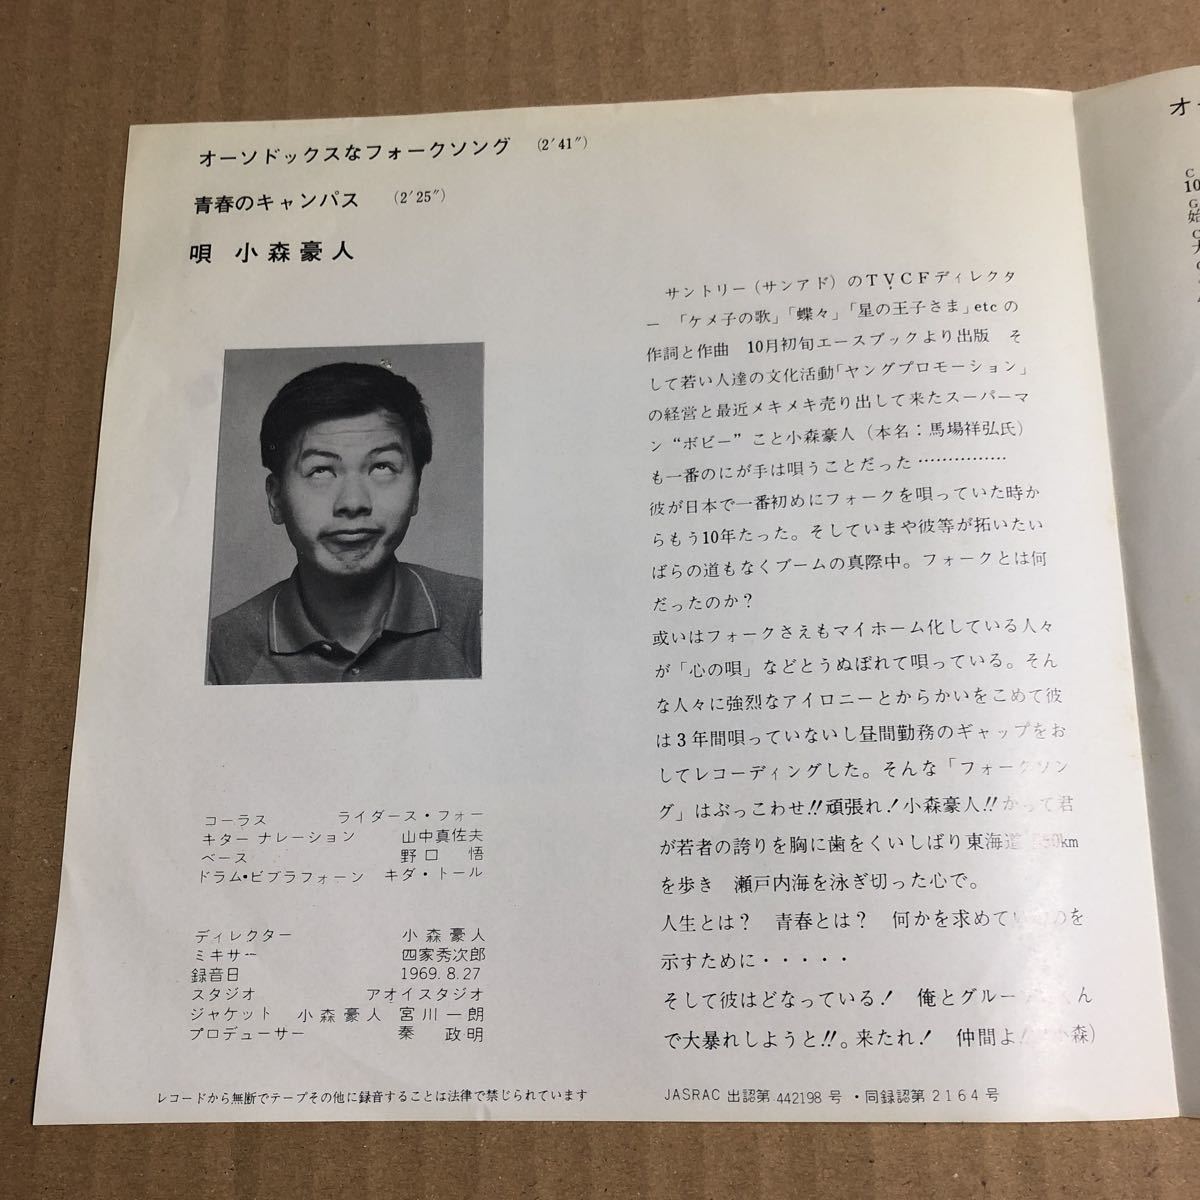 オーソドックスなフォークソング (2′41″)
青春のキャンパス (2′25″)
唄 小森豪人
サントリー(サンアド)のTVCFディレクタ
ー 「ケメ子の歌」「蝶々」「星の王子さま」etcの
作詞と作曲 10月初旬エースブックより出版 そ
して若い人達の文化活動「ヤングプロモーション」
の経営と最近メキメキ売り出して来たスーパーマ
ン“ボビー”こと小森豪人(本名:馬場祥弘氏)
も一番のにが手は唄うことだった……………
彼が日本で一番初めにフォークを唄っていた時か
らもう10年たった。そしていまや彼等が拓いたい
ばらの道もなくブームの真際中。フォークとは何
だったのか?
或いはフォークさえもマイホーム化している人々
が「心の唄」などとうぬぼれて唄っている。そん
な人々に強烈なアイロニーとからかいをこめて彼
は3年間唄っていないし昼間勤務のギャップをお
してレコーディングした。そんな「フォークソン
グ」はぶっこわせ!!頑張れ!小森豪人!!かって君
が若者の誇りを胸に歯をくいしばり東海道 km
を歩き 瀬戸内海を泳ぎ切った心で。
人生とは? 青春とは? 何かを求めているのを
示すために・・・・・
そして彼はどなっている! 俺とグループ くん
で大暴れしようと!!。来たれ! 仲間よ! 小森)
コーラス ライダース・フォー
キター ナレーション 山中真佐夫
ベース 野口 悟
ドラム・ビブラフォーン キダ・トール
ディレクター 小森豪人
ミキサー 四家秀次郎
録音日 1969. 8. 27
スタジオ アオイスタジオ
ジャケット 小森豪人 宮川一朗
プロデューサー 秦 政明
レコードから無断でテープその他に録音することは法律で禁じられています
JASRAC 出認第 442198 号 ・同録認第 2164 号
オー
C
10
G
始
C